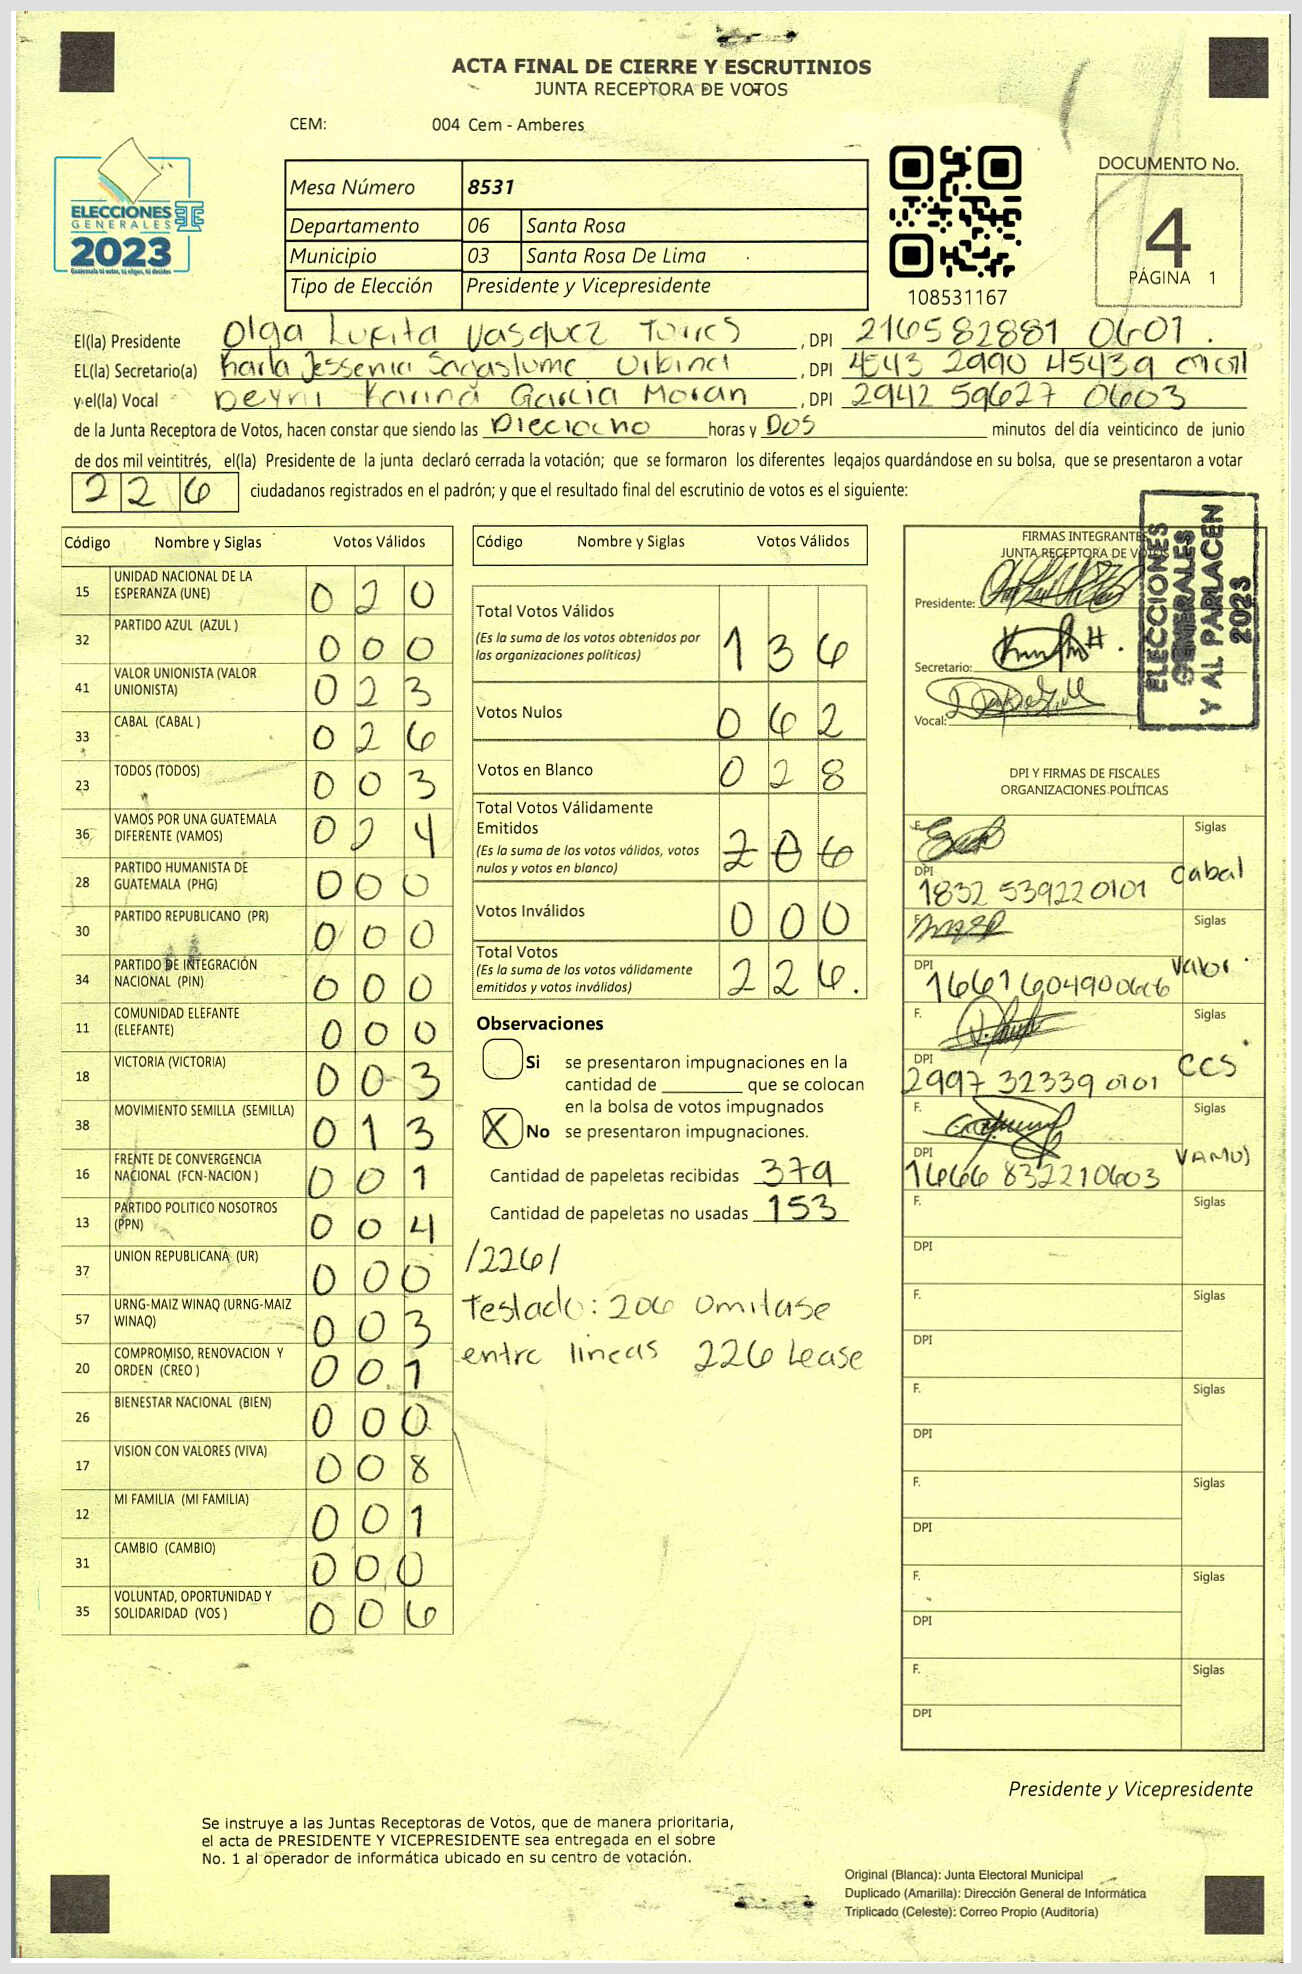 ACTA FINAL DE CIERRE Y ESCRUTINIOS
JUNTA RECEPTORA DE VOTOS
CEM: 004 Cem - Amberes
ELECCIONES
GENERALES
2023
Guatemala tú votas, tú eliges, tú decides
Mesa Número 8531
Departamento 06 Santa Rosa
Municipio 03 Santa Rosa De Lima
Tipo de Elección Presidente y Vicepresidente
108531167
DOCUMENTO No.
4
PÁGINA 1
El(la) Presidente Olga Lupita Vasquez Torres, DPI 216582881 0601.
EL(la) Secretario(a) Karla Jessenia Sagastume Urbina, DPI 4543 2990 45439
y el(la) Vocal Deyni Karina Garcia Moran, DPI 2942 59627 0603
de la Junta Receptora de Votos, hacen constar que siendo las Dieciocho horas y Dos minutos del día veinticinco de junio
de dos mil veintitrés, el(la) Presidente de la junta declaró cerrada la votación; que se formaron los diferentes legajos guardándose en su bolsa, que se presentaron a votar
226 ciudadanos registrados en el padrón; y que el resultado final del escrutinio de votos es el siguiente:
Código Nombre y Siglas Votos Válidos
15 UNIDAD NACIONAL DE LA ESPERANZA (UNE) 020
32 PARTIDO AZUL (AZUL ) 000
41 VALOR UNIONISTA (VALOR UNIONISTA) 023
33 CABAL (CABAL ) 026
23 TODOS (TODOS) 003
36 VAMOS POR UNA GUATEMALA DIFERENTE (VAMOS) 024
28 PARTIDO HUMANISTA DE GUATEMALA (PHG) 000
30 PARTIDO REPUBLICANO (PR) 000
34 PARTIDO DE INTEGRACIÓN NACIONAL (PIN) 000
11 COMUNIDAD ELEFANTE (ELEFANTE) 000
18 VICTORIA (VICTORIA) 003
38 MOVIMIENTO SEMILLA (SEMILLA) 013
16 FRENTE DE CONVERGENCIA NACIONAL (FCN-NACION ) 001
13 PARTIDO POLITICO NOSOTROS (PPN) 004
37 UNION REPUBLICANA (UR) 000
57 URNG-MAIZ WINAQ (URNG-MAIZ WINAQ) 003
20 COMPROMISO, RENOVACION Y ORDEN (CREO ) 001
26 BIENESTAR NACIONAL (BIEN) 000
17 VISION CON VALORES (VIVA) 008
12 MI FAMILIA (MI FAMILIA) 001
31 CAMBIO (CAMBIO) 000
35 VOLUNTAD, OPORTUNIDAD Y SOLIDARIDAD (VOS ) 006
Código Nombre y Siglas Votos Válidos
Total Votos Válidos
(Es la suma de los votos obtenidos por
las organizaciones políticas) 136
Votos Nulos 062
Votos en Blanco 028
Total Votos Válidamente
Emitidos
(Es la suma de los votos válidos, votos
nulos y votos en blanco) 206
Votos Inválidos 000
Total Votos
(Es la suma de los votos válidamente
emitidos y votos inválidos) 226.
Observaciones
Si se presentaron impugnaciones en la
cantidad de ________ que se colocan
en la bolsa de votos impugnados
X No se presentaron impugnaciones.
Cantidad de papeletas recibidas 379
Cantidad de papeletas no usadas 153
/226/
Testado: 206 Omitase
entre lineas 226 Lease
FIRMAS INTEGRANTES
JUNTA RECEPTORA DE VOTOS
Presidente:
Secretario:
Vocal:
ELECCIONES
GENERALES
Y AL PARLACEN
2023
DPI Y FIRMAS DE FISCALES
ORGANIZACIONES POLÍTICAS
F. Siglas
DPI 1832 539220101 Cabal
F. Siglas
DPI 1661604900606 Valor
F. Siglas
DPI 2997 32339 0101 CCS
F. Siglas
DPI 1666 832210603 VAMOS
F. Siglas
DPI
F. Siglas
DPI
F. Siglas
DPI
F. Siglas
DPI
F. Siglas
DPI
F. Siglas
DPI
Presidente y Vicepresidente
Se instruye a las Juntas Receptoras de Votos, que de manera prioritaria,
el acta de PRESIDENTE Y VICEPRESIDENTE sea entregada en el sobre
No. 1 al operador de informática ubicado en su centro de votación.
Original (Blanca): Junta Electoral Municipal
Duplicado (Amarilla): Dirección General de Informática
Triplicado (Celeste): Correo Propio (Auditoría)